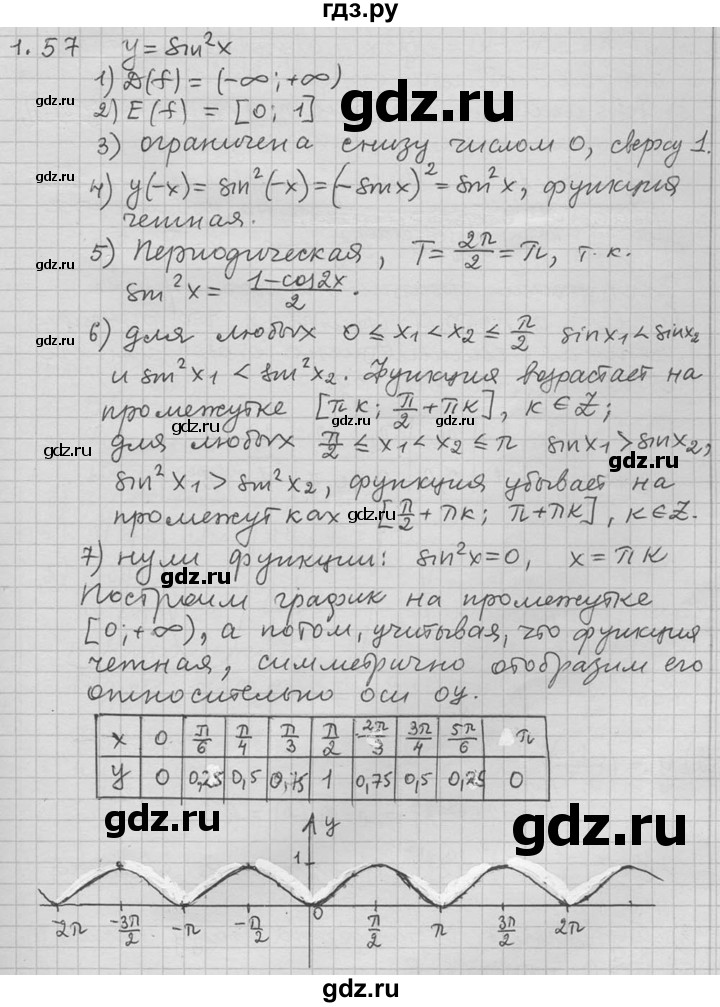 гдз.ру
1.57 y = sin²x
1) D(f) = (-∞; +∞)
gdz.ru
2) E(f) = [0; 1]
gdz.ru
3) ограничена снизу числом 0, сверху 1.
gdz.ru
4) y(-x) = sin²(-x) = (-sinx)² = sin²x, функция
gdz.ru
четная.
5) Периодическая, T = 2π/2 = π, т.к.
gdz.ru
sin²x = (1-cos2x)/2.
gdz.ru
6) для любых 0 ≤ x₁ < x₂ ≤ π/2 sinx₁ < sinx₂
gdz.ru
и sin²x₁ < sin²x₂. Функция возрастает на
промежутке [πк; π/2 + πк], к ∈ Z;
gdz.ru gdz.ru gdz.ru
для любых π/2 ≤ x₁ < x₂ ≤ π sinx₁ > sinx₂,
gdz.ru
sin²x₁ > sin²x₂, функция убывает на
промежутках [π/2 + πк; π + πк], к ∈ Z.
gdz.ru gdz.ru
7) нули функции: sin²x = 0, x = πк
gdz.ru
Построим график на промежутке
gdz.ru
[0; +∞), а потом, учитывая, что функция
gdz.ru gdz.ru
четная, симметрично отобразим его
gdz.ru
относительно оси оу.
x 0 π/6 π/4 π/3 π/2 2π/3 3π/4 5π/6 π
y 0 0,25 0,5 0,75 1 0,75 0,5 0,25 0
gdz.ru gdz.ru
y
1
-2π -3π/2 -π -π/2 0 π/2 π 3π/2 2π
gdz.ru gdz.ru
gdz.ru